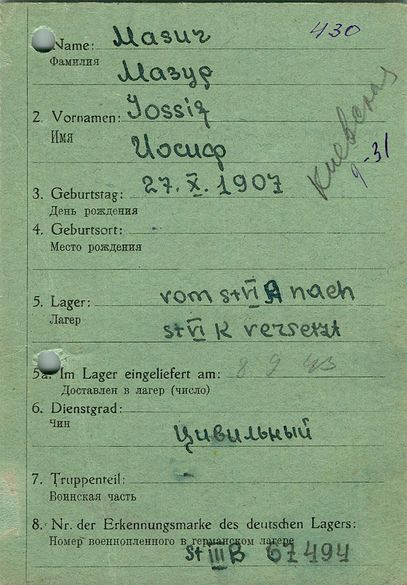 430
Name: Мазич
Фамилия
Мазур
2. Vornamen: Iossif
Имя
Иосиф
Киевская
9-31
3. Geburtstag: 27. X. 1907
День рождения
4. Geburtsort: -
Место рождения
5. Lager: vom st VI A nach
Лагер
st VI K versetzt
5a. Im Lager eingeliefert am: 8 9 43
Доставлен в лагер (число)
6. Dienstgrad:
Чин
Цивильный
7. Truppenteil: -
Воинская часть
8. Nr. der Erkennungsmarke des deutschen Lagers:
Номер военнопленного в германском лагере
st III B 67494